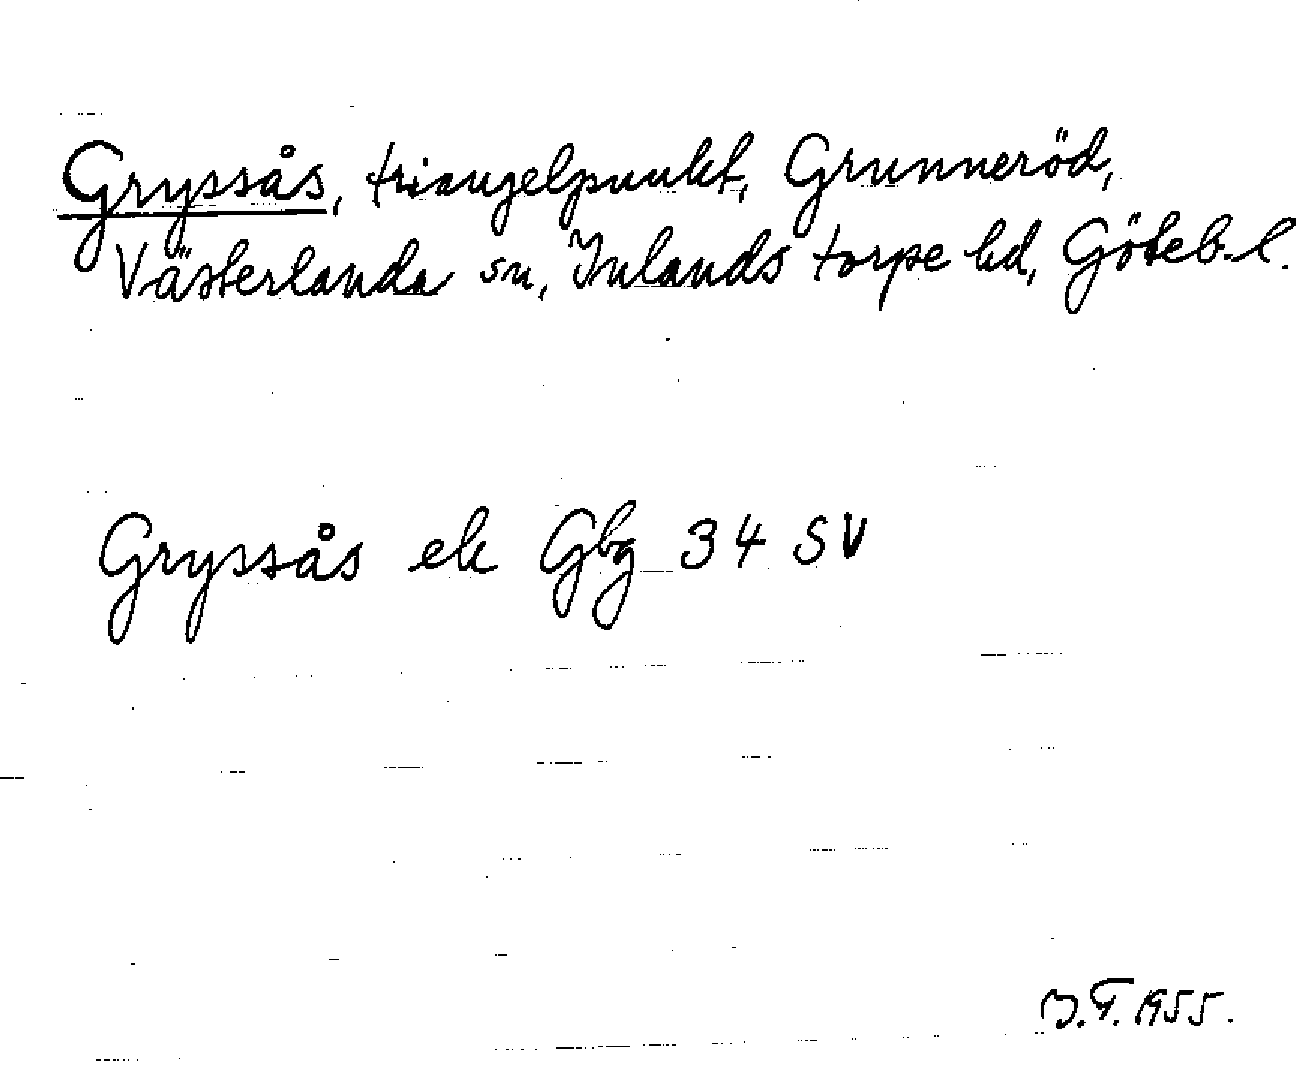 Gryssås, triangelpunkt, Grunneröd,
Västerlanda sn, Inlands torpe hd, Göteb. l.
Gryssås ek Gbg 34 SV
1955.